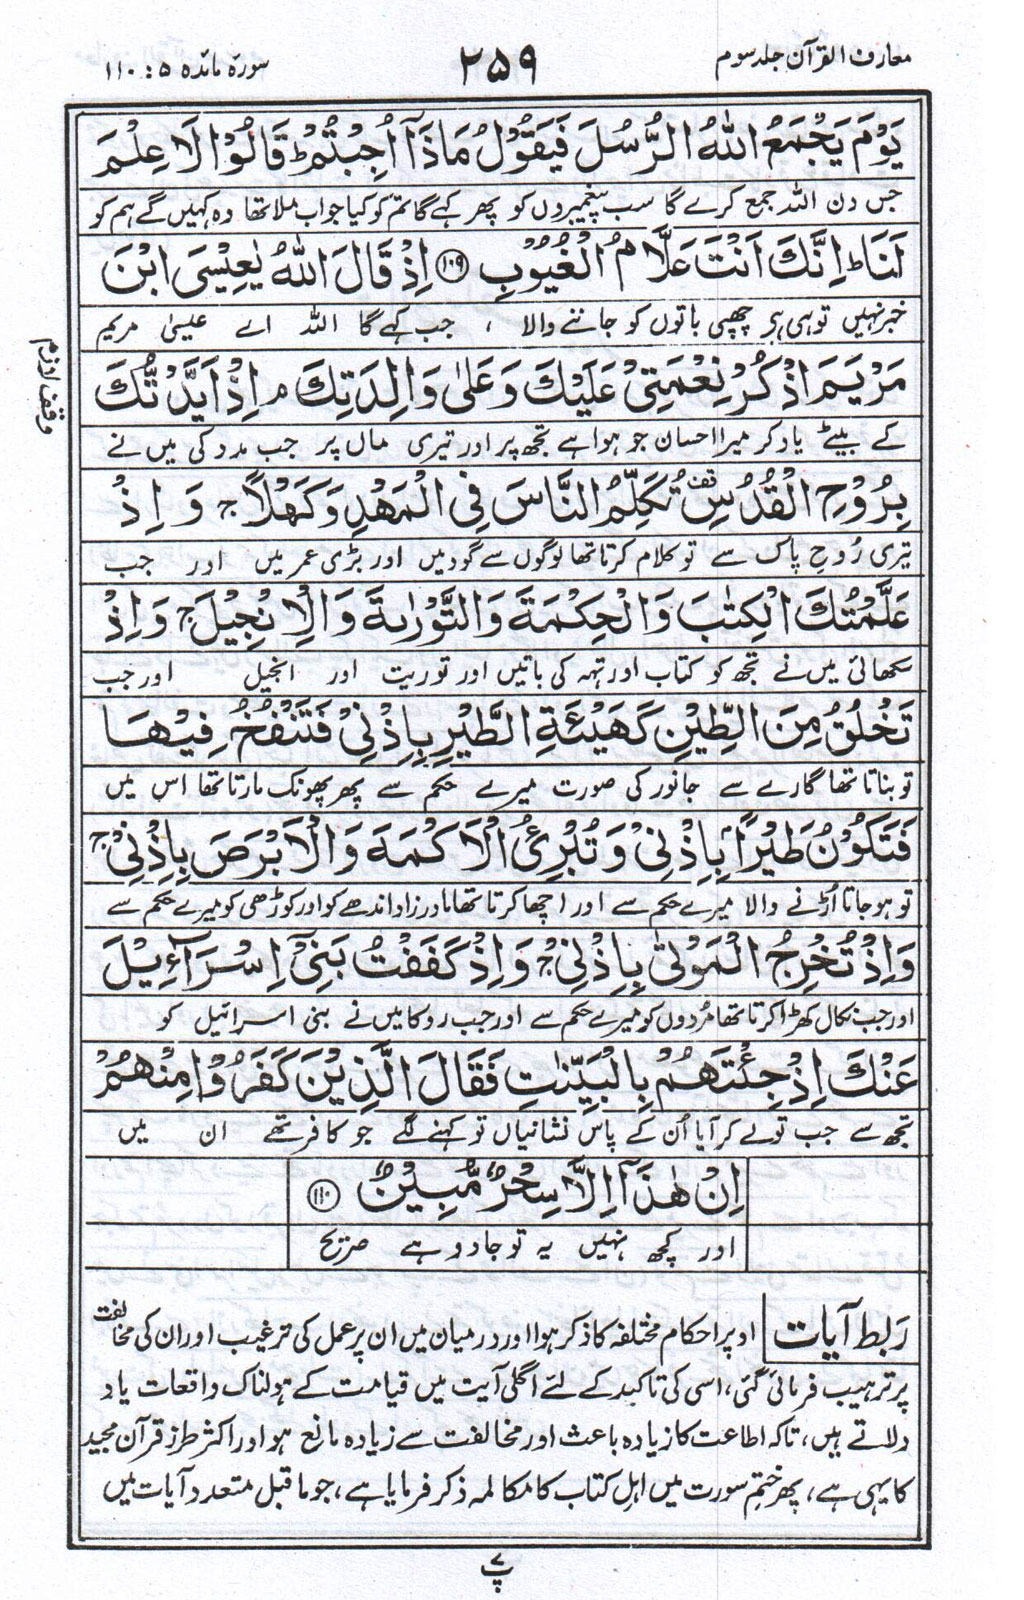 معارف القرآن جلد سوم
۲۵۹
سورۃ مائدہ ۵ : ۱۱۰
يَوْمَ يَجْمَعُ اللّٰهُ الرُّسُلَ فَيَقُوْلُ مَاذَآ اُجِبْتُمْ ؕ قَالُوْا لَا عِلْمَ
جس دن اللہ جمع کرے گا سب پیغمبروں کو پھر کہے گا تم کو کیا جواب ملا تھا وہ کہیں گے ہم کو
لَنَا ؕ اِنَّكَ اَنْتَ عَلَّامُ الْغُيُوْبِ ﴿۱۰۹﴾ اِذْ قَالَ اللّٰهُ يٰعِيْسَى ابْنَ
خبر نہیں تو ہی ہے چھپی باتوں کو جاننے والا ، جب کہے گا اللہ اے عیسیٰ مریم
مَرْيَمَ اذْكُرْ نِعْمَتِيْ عَلَيْكَ وَعَلٰى وَالِدَتِكَ ۘ اِذْ اَيَّدْتُّكَ
وقف لازم
کے بیٹے یاد کر میرا احسان جو ہوا ہے تجھ پر اور تیری ماں پر جب مدد کی میں نے
بِرُوْحِ الْقُدُسِ ۟ تُكَلِّمُ النَّاسَ فِى الْمَهْدِ وَكَهْلًا ۚ وَاِذْ
تیری رُوح پاک سے تو کلام کرتا تھا لوگوں سے گود میں اور بڑی عمر میں اور جب
عَلَّمْتُكَ الْكِتٰبَ وَالْحِكْمَةَ وَالتَّوْرٰىةَ وَالْاِنْجِيْلَ ۚ وَاِذْ
سکھائی میں نے تجھ کو کتاب اور تہہ کی باتیں اور توریت اور انجیل اور جب
تَخْلُقُ مِنَ الطِّيْنِ كَهَيْئَةِ الطَّيْرِ بِاِذْنِيْ فَتَنْفُخُ فِيْهَا
تو بناتا تھا گارے سے جانور کی صورت میرے حکم سے پھر پھونک مارتا تھا اس میں
فَتَكُوْنُ طَيْرًۢا بِاِذْنِيْ وَتُبْرِئُ الْاَكْمَهَ وَالْاَبْرَصَ بِاِذْنِيْ ۚ
تو ہو جاتا اُڑنے والا میرے حکم سے اور اچھا کرتا تھا مادرزاد اندھے کو اور کوڑھی کو میرے حکم سے
وَاِذْ تُخْرِجُ الْمَوْتٰى بِاِذْنِيْ ۚ وَاِذْ كَفَفْتُ بَنِيْٓ اِسْرَآءِيْلَ
اور جب نکال کھڑا کرتا تھا مُردوں کو میرے حکم سے اور جب روکا میں نے بنی اسرائیل کو
عَنْكَ اِذْ جِئْتَهُمْ بِالْبَيِّنٰتِ فَقَالَ الَّذِيْنَ كَفَرُوْا مِنْهُمْ
تجھ سے جب تو لے کر آیا اُن کے پاس نشانیاں تو کہنے لگے جو کافر تھے ان میں
اِنْ هٰذَآ اِلَّا سِحْرٌ مُّبِيْنٌ ﴿۱۱۰﴾
اور کچھ نہیں یہ تو جادو ہے صریح
ربط آیات اوپر احکام مختلفہ کا ذکر ہوا اور درمیان میں ان پر عمل کی ترغیب اور ان کی مخالفت
پر ترہیب فرمائی گئی، اسی کی تاکید کے لئے اگلی آیت میں قیامت کے ہولناک واقعات یاد
دلاتے ہیں، تاکہ اطاعت کا زیادہ باعث اور مخالفت سے زیادہ مانع ہو اور اکثر طرز قرآن مجید
کا یہی ہے، پھر ختم سورت میں اہل کتاب کا مکالمہ ذکر فرمایا ہے، جو ماقبل متعدد آیات میں